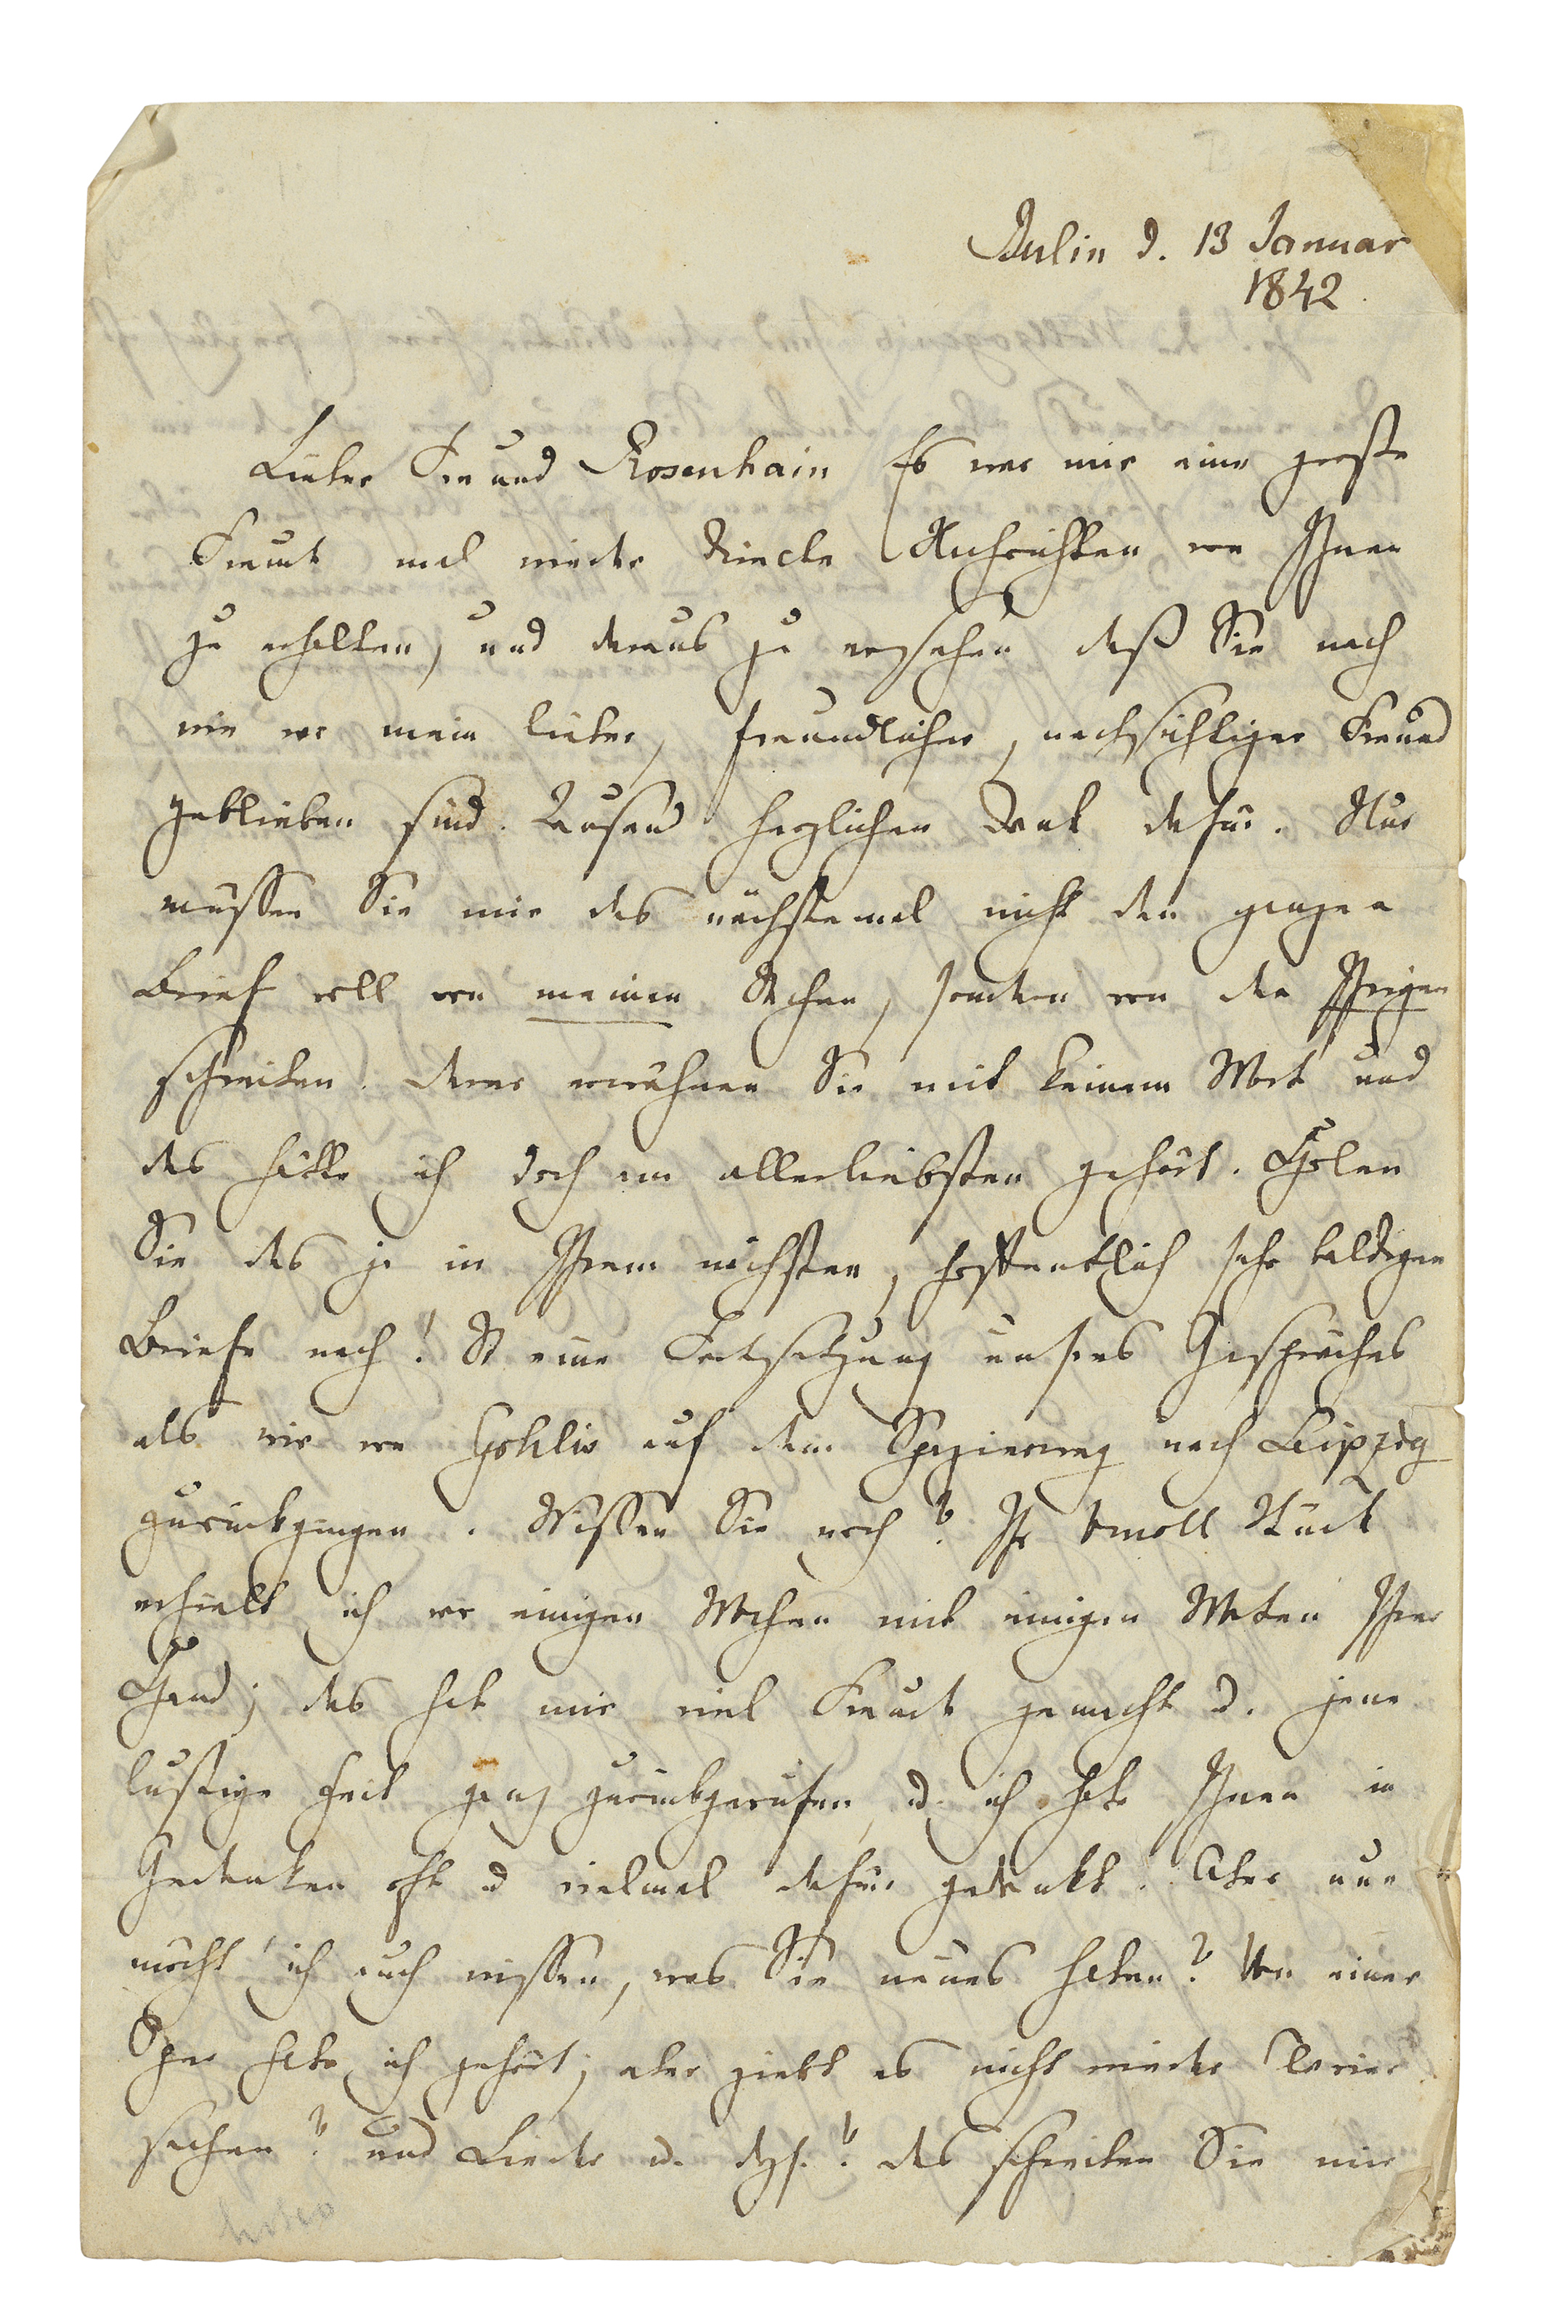 Berlin d. 13 Januar
1842.
Lieber Freund Rosenhain Es war mir eine große
Freude mal wieder directe Nachrichten von Ihnen
zu erhalten, und daraus zu ersehen daß Sie nach
wie vor mein lieber, freundlicher, nachsichtiger Freund
geblieben sind. Tausend herzlichen Dank dafür. Nur
müssen Sie mir das nächstemal nicht den ganzen
Brief voll von meinen Sachen, sondern von den Ihrigen
schreiben. Deren erwähnen Sie mit keinem Wort und
das hätte ich doch am allerliebsten gehört. Holen
Sie das ja in Ihrem nächsten, hoffentlich sehr baldigen
Briefe nach! So eine Fortsetzung unsres Gespräches
als wir von Gohlis auf dem Spazierweg nach Leipzig
zurückgingen. Wissen Sie noch? Ihr bmoll Stück
erhielt ich vor einigen Wochen mit einigen Worten Ihrer
Hand; das hat mir viel Freude gemacht u. jene
lustige Zeit ganz zurückgerufen, u. ich habe Ihnen in
Gedanken oft u vielmal dafür gedankt. Aber nun
möcht' ich auch wissen, was Sie neues haben? Von einer
Oper habe ich gehört; aber giebt es nicht wieder Clavier
sachen? und Lieder u. dgl.? das schreiben Sie mir